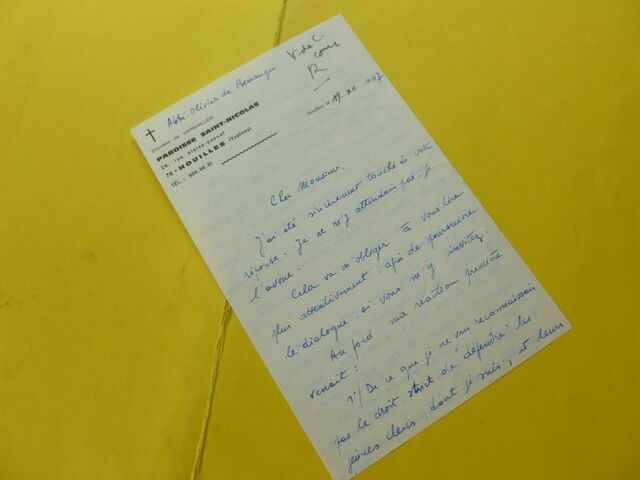 V. de C.
cours
R
Abbé Olivier de Berranger
Diocèse de VERSAILLES
PAROISSE SAINT-NICOLAS
28, rue Blaise-Pascal
78 - HOUILLES (Yvelines)
TÉL. : 968.98.81
Houilles, le 19 XII 1967
Cher Monsieur,
J'ai été sincèrement touché de votre
réponse. Je ne m'y attendais pas, je
l'avoue.
Cela va m'obliger à vous lire
plus attentivement, afin de poursuivre
le dialogue, si vous m'y invitez.
Au fond ma réaction première
venait :
1°/ De ce que je ne vous reconnaissais
pas le droit strict de "défendre" les
jeunes clercs, dont je suis, et leurs